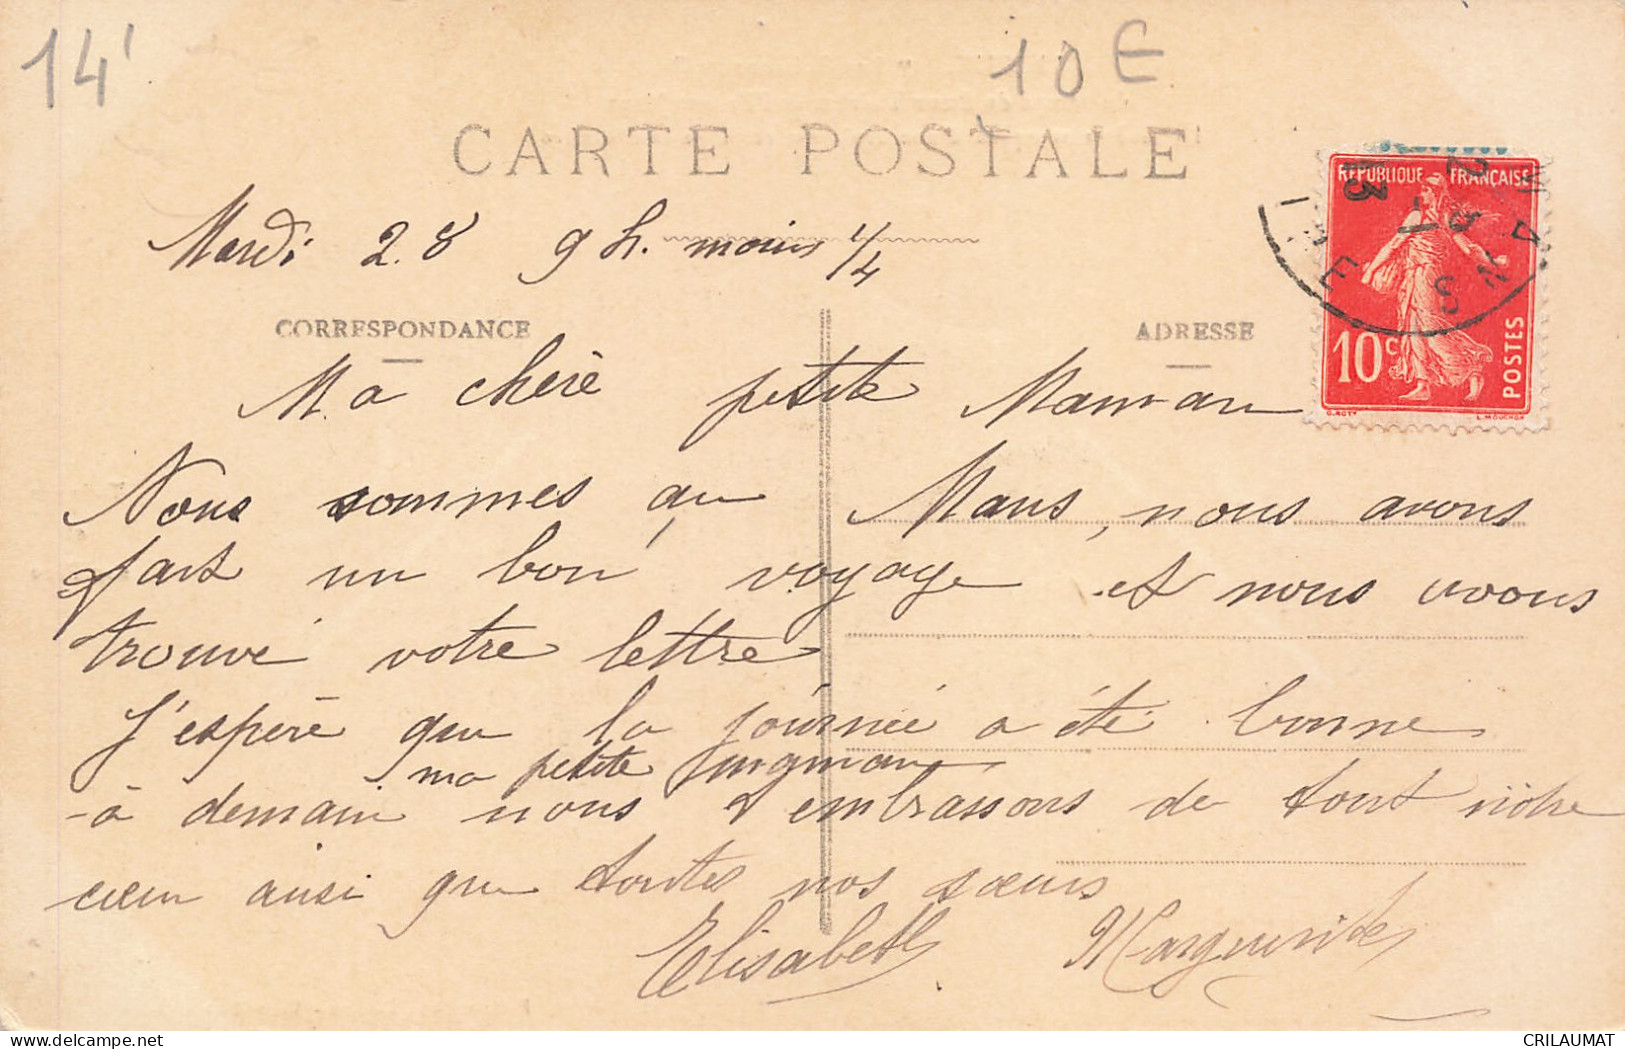 14'
10 E
CARTE POSTALE
RÉPUBLIQUE FRANÇAISE
10c
POSTES
Mardi 28 9 h. moins 1/4
CORRESPONDANCE
ADRESSE
Ma chère petite Maman
Nous sommes au Mans, nous avons
fait un bon voyage et nous avons
trouvé votre lettre
J'espère que la journée a été bonne
ma petite
à demain nous t'embrassons de tout nôtre
cœur ausi que toutes nos sœurs
Elisabeth Marguerite
CRILAUMAT